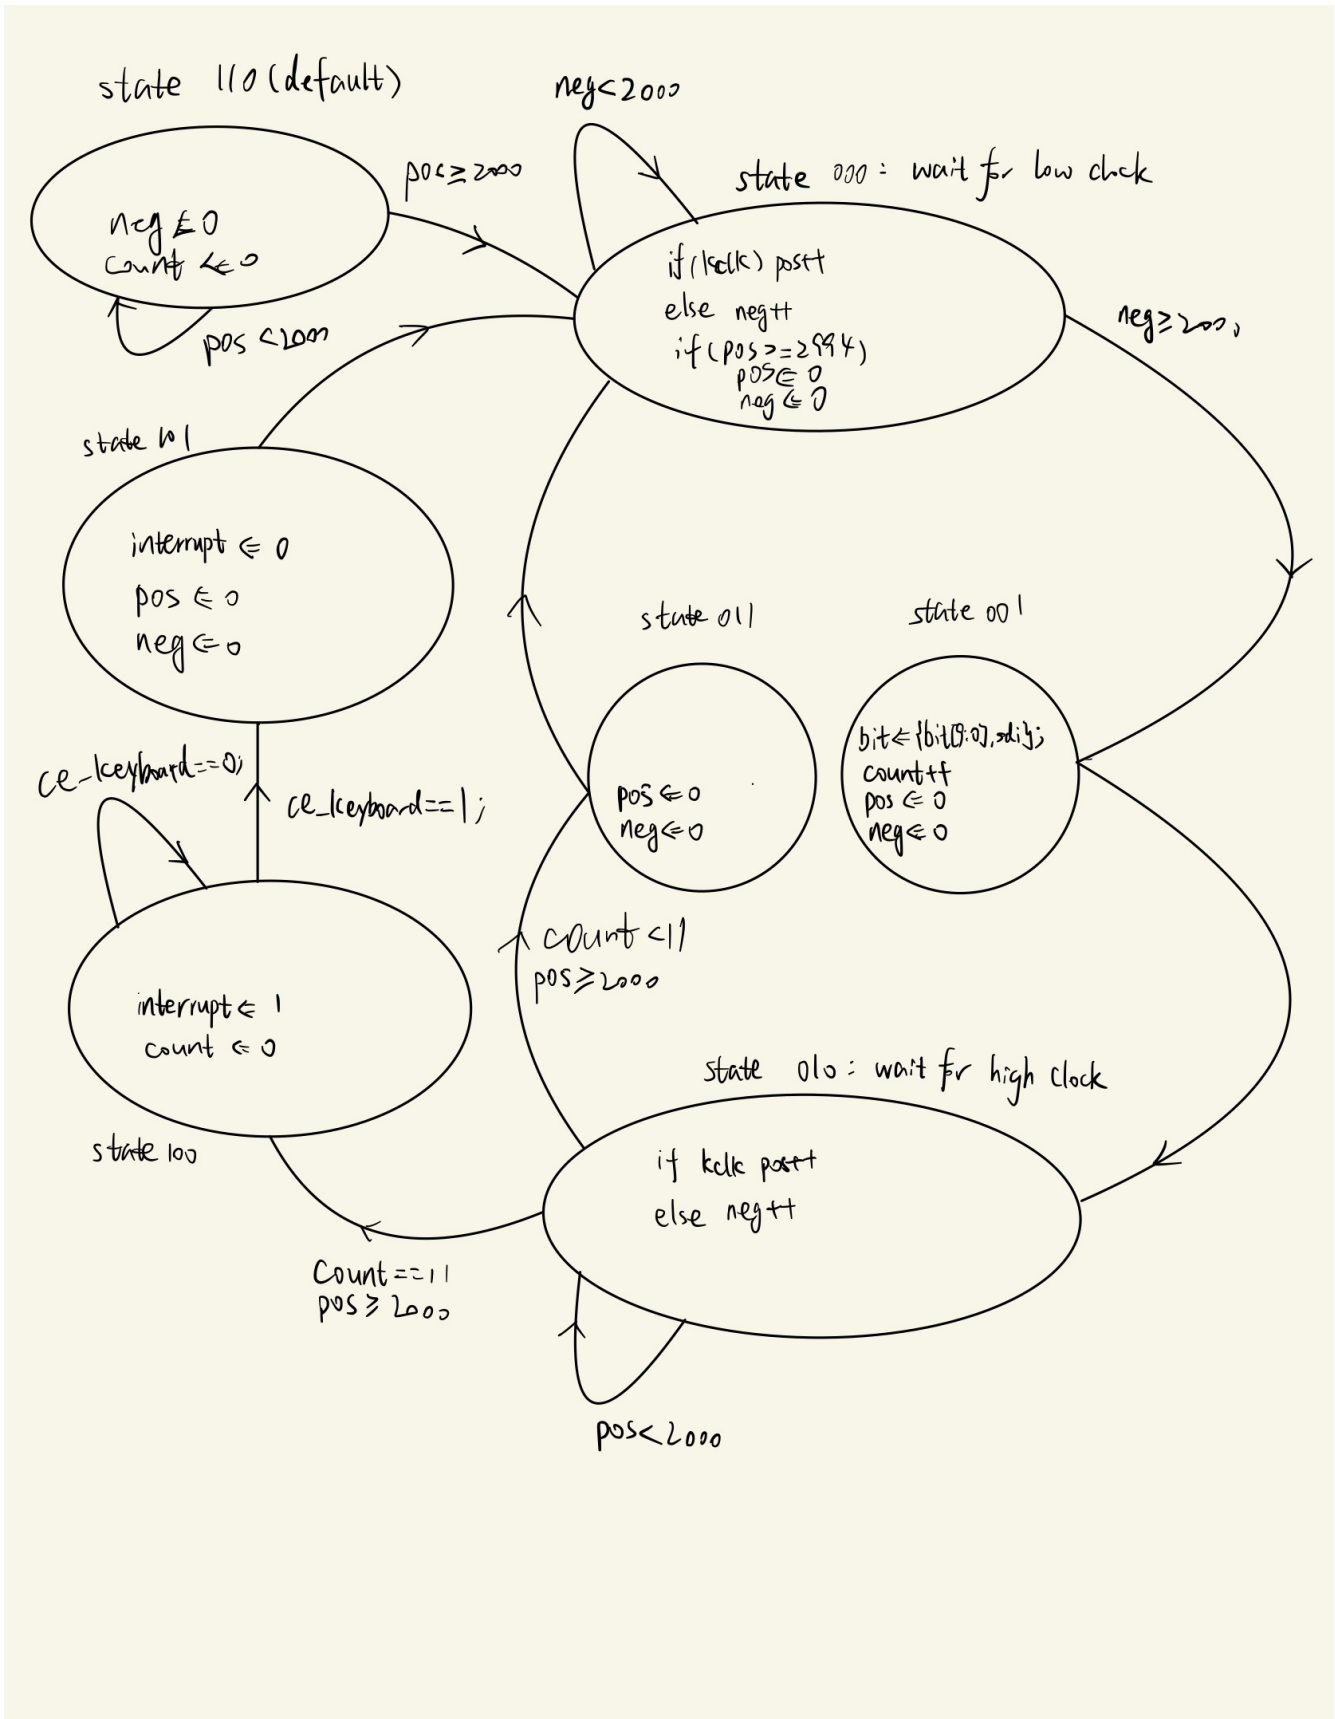 state 110 (default)
neg ⇐ 0
count ⇐ 0
pos < 2000
pos ≥ 2000
neg < 2000
state 000 : wait for low clock
if (kclk) pos++
else neg++
if (pos >= 2994)
pos ⇐ 0
neg ⇐ 0
neg ≥ 2000
state 101
interrupt ⇐ 0
pos ⇐ 0
neg ⇐ 0
state 011
pos ⇐ 0
neg ⇐ 0
state 001
bit ⇐ {bit[9:0], sdi};
count++
pos ⇐ 0
neg ⇐ 0
ce_keyboard==0;
ce_keyboard==1;
count < 11
pos ≥ 2000
interrupt ⇐ 1
count ⇐ 0
state 100
state 010 : wait for high clock
if kclk pos++
else neg++
Count == 11
pos ≥ 2000
pos < 2000